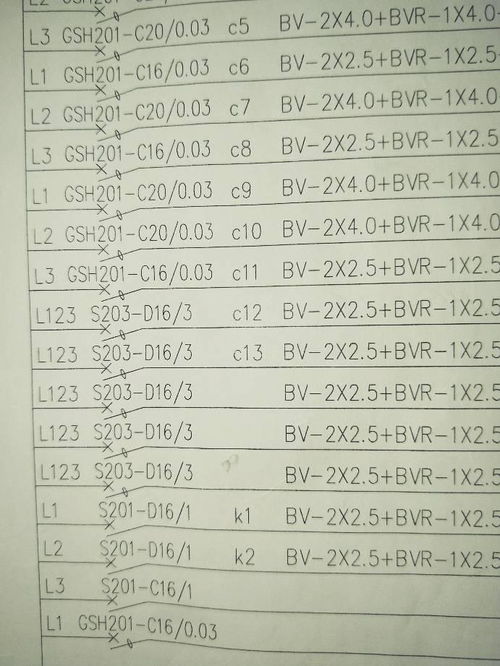 L3 GSH201-C20/0.03 c5 BV-2X4.0+BVR-1X4.0
L1 GSH201-C16/0.03 c6 BV-2X2.5+BVR-1X2.5
L2 GSH201-C20/0.03 c7 BV-2X4.0+BVR-1X4.0
L3 GSH201-C16/0.03 c8 BV-2X2.5+BVR-1X2.5
L1 GSH201-C20/0.03 c9 BV-2X4.0+BVR-1X4.0
L2 GSH201-C20/0.03 c10 BV-2X4.0+BVR-1X4.0
L3 GSH201-C16/0.03 c11 BV-2X2.5+BVR-1X2.5
L123 S203-D16/3 c12 BV-2X2.5+BVR-1X2.5
L123 S203-D16/3 c13 BV-2X2.5+BVR-1X2.5
L123 S203-D16/3 BV-2X2.5+BVR-1X2.5
L123 S203-D16/3 BV-2X2.5+BVR-1X2.5
L123 S203-D16/3 BV-2X2.5+BVR-1X2.5
L1 S201-D16/1 k1 BV-2X2.5+BVR-1X2.5
L2 S201-D16/1 k2 BV-2X2.5+BVR-1X2.5
L3 S201-C16/1
L1 GSH201-C16/0.03